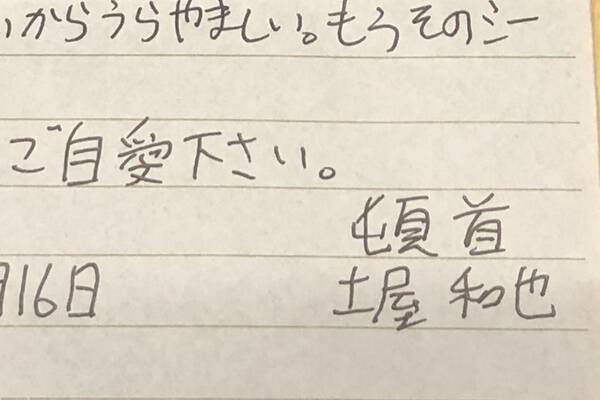 いからうらやましい。もうそのシー
ご自愛下さい。
頓首
月16日
土屋 和也